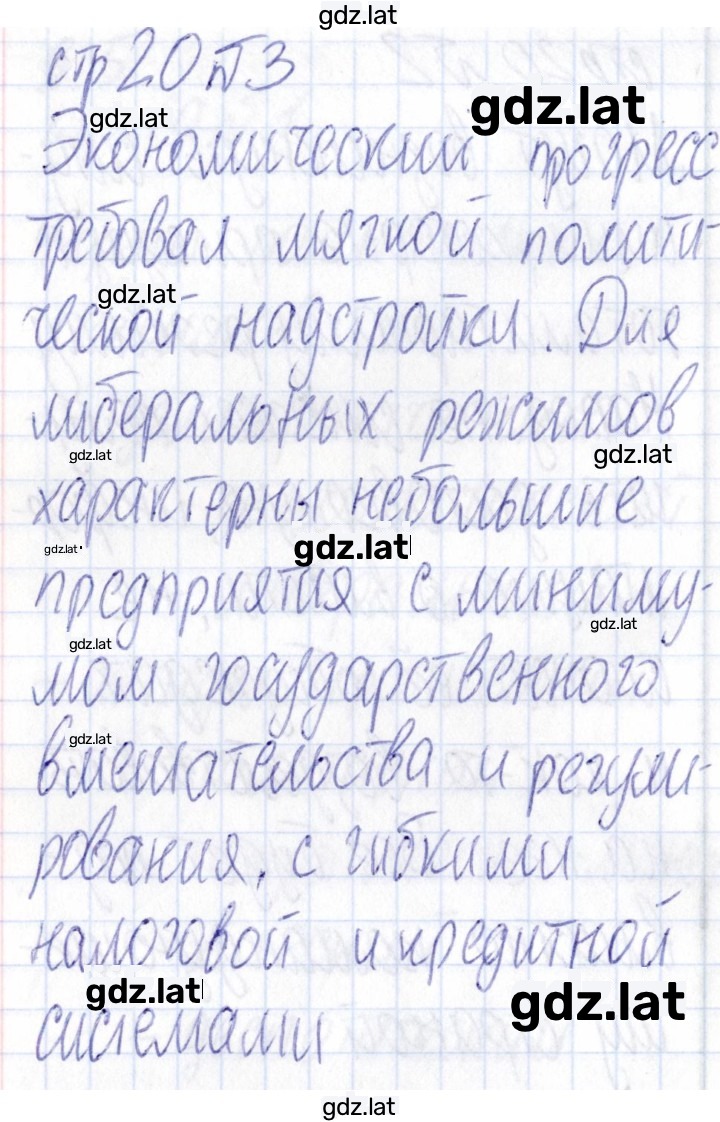 gdz.lat
стр 20 п3
gdz.lat
gdz.lat
Экономический прогресс
требовал мягкой полити-
gdz.lat
ческой надстройки. Для
либеральных режимов
gdz.lat
gdz.lat
характерны небольшие
gdz.lat
gdz.lat
предприятия с миниму-
gdz.lat
gdz.lat
мом государственного
gdz.lat
вмешательства и регули-
рования, с гибкими
налоговой и кредитной
gdz.lat
gdz.lat
системами
gdz.lat